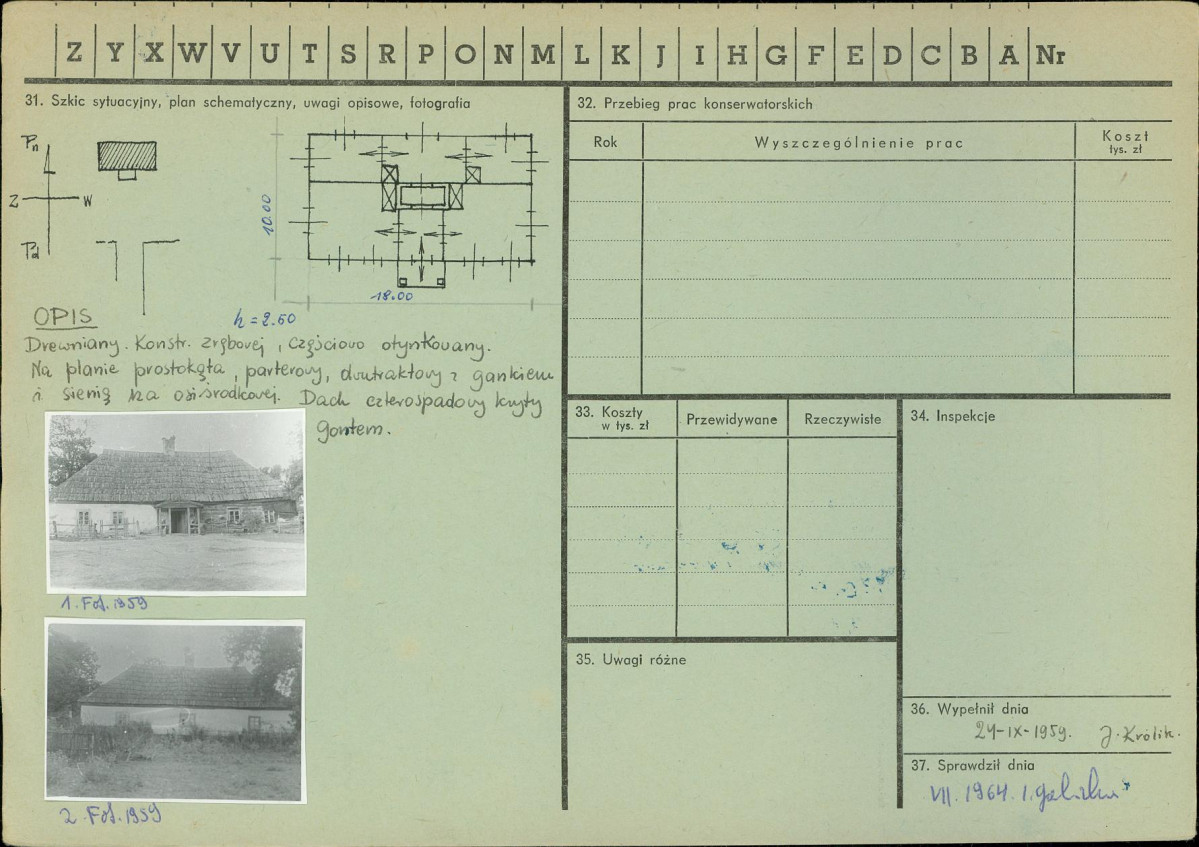 Z Y X W V U T S R P O N M L K J I H G F E D C B A Nr
31. Szkic sytuacyjny, plan schematyczny, uwagi opisowe, fotografia
Pn
Z W
Pd
10.00
18.00
h = 2.60
OPIS
Drewniany. Konstr. zrębowej, częściowo otynkowany.
Na planie prostokąta, parterowy, dwutraktowy z gankiem
i sienią na osi środkowej. Dach czterospadowy kryty
gontem.
1. Fot. 1959
2. Fot. 1959
32. Przebieg prac konserwatorskich
Rok
Wyszczególnienie prac
Koszt
tys. zł
33. Koszty
w tys. zł
Przewidywane
Rzeczywiste
34. Inspekcje
35. Uwagi różne
36. Wypełnił dnia
24-IX-1959. J. Królik.
37. Sprawdził dnia
VII. 1964.